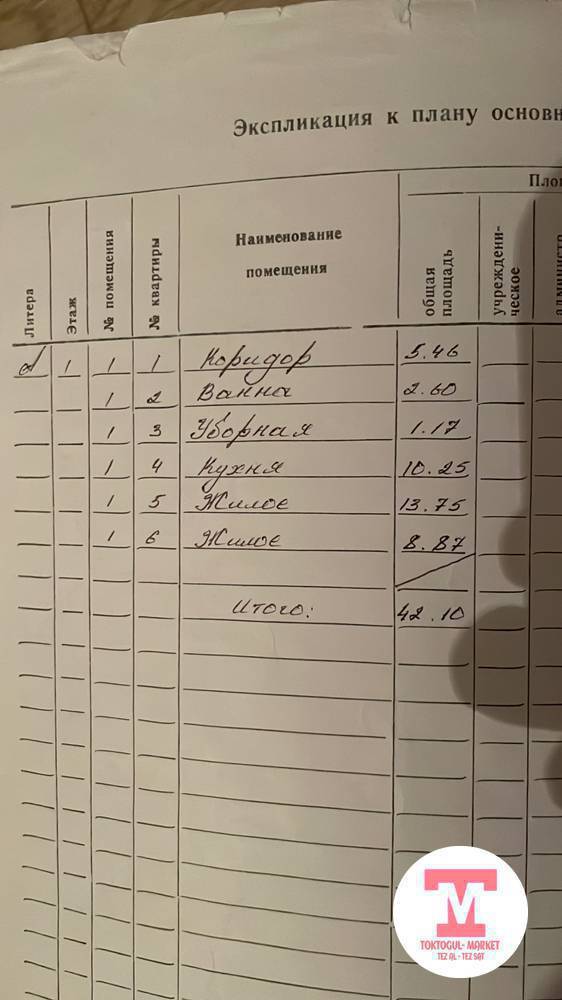 Экспликация к плану основн
Литера
Этаж
№ помещения
№ квартиры
Наименование
помещения
Пло
общая
площадь
учреждени-
ческое
администр
1 1 1 Коридор 5.46
1 2 Ванна 2.60
1 3 Уборная 1.17
1 4 Кухня 10.25
1 5 Жилое 13.75
1 6 Жилое 8.87
Итого: 42.10
TM
TOKTOGUL- MARKET
TEZ AL - TEZ SAT